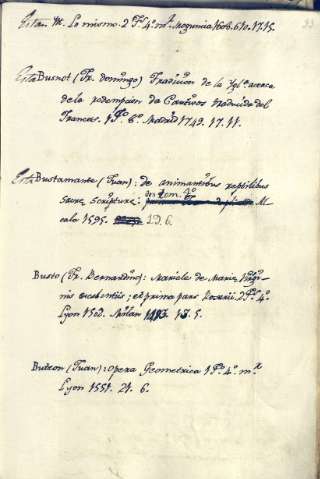 Está. M. Lo mismo. 2 Ts. 4º. mª. Mogunia 1608. 610. 17. 15.
33
Está Busnot (Fr. domingo) Tradicion de la Yglª. acerca
de la redempcion de Cautivos traducido del
Frances. 1 Tº. 8º. Madrid 1742. 17. 11.
Está Bustamante (Juan): de animantibus reptilibus
Sacræ Scripturæ: Al
cala 1595. 20. 6.
Busto (Fr. Bernardino): Mariale de Maria Virgi
nis excelentiis; et prima pars Rosarii. 2 Ts. 4º.
Lyon 1502. 15. 5.
Buteon (Juan): Opera Geometrica 1 Tº. 4º. mª
Lyon 1551. 21. 6.